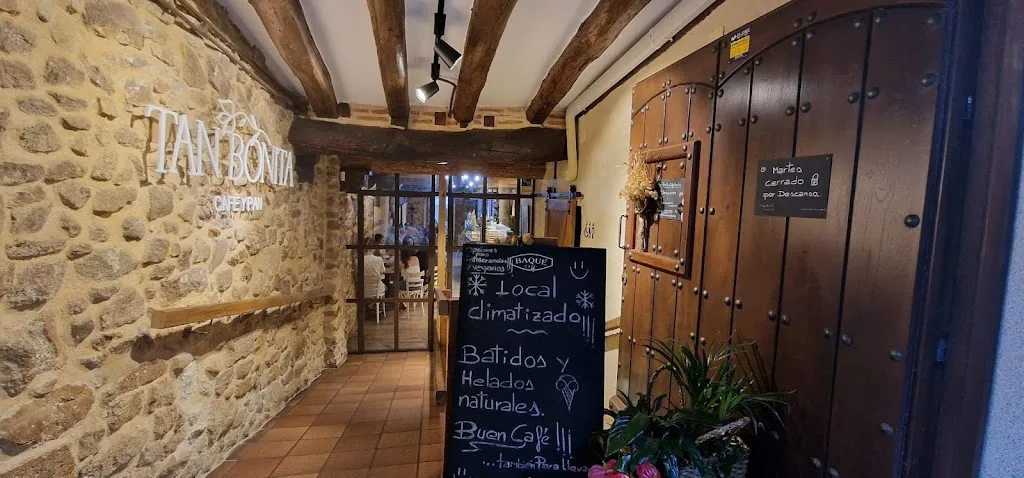 TAN BONITA
CAFEYPAN
BAQUE
Local
climatizado!!!
Batidos y
Helados
naturales.
Buen Café!!!
...también Para lleva
Martes
cerrado
por Descanso.